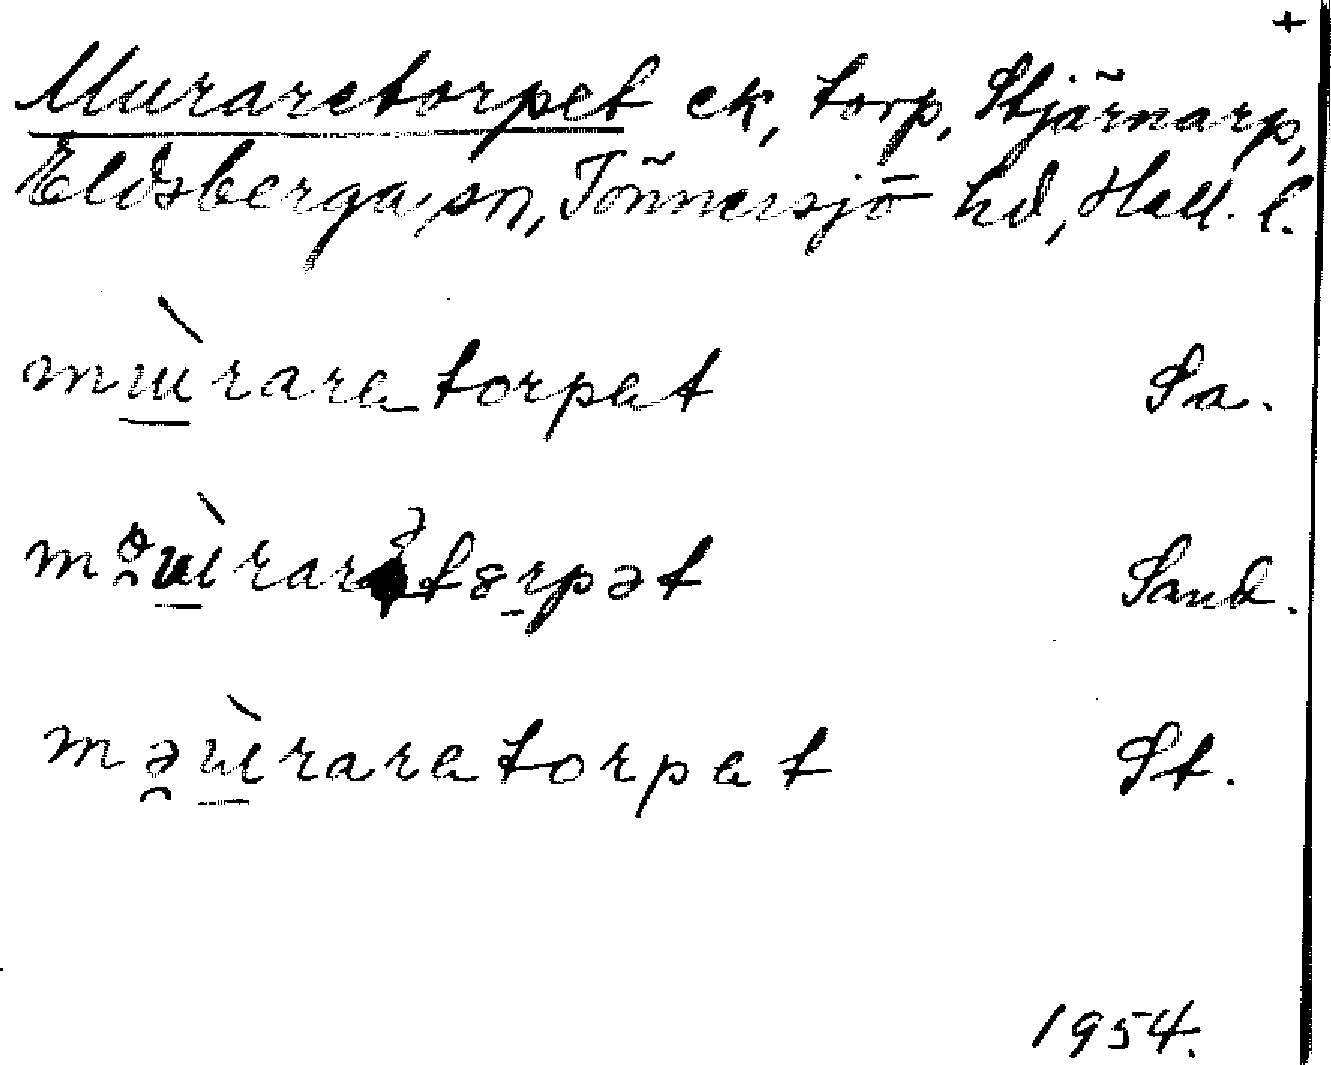 +
Muraretorpet ek, torp, Stjärnarp,
Eldsberga sn, Tönnersjö hd, Hall. l.
mɯ̀raretorpet Sa.
Sand.
məɯ̀raretorpet St.
1954.